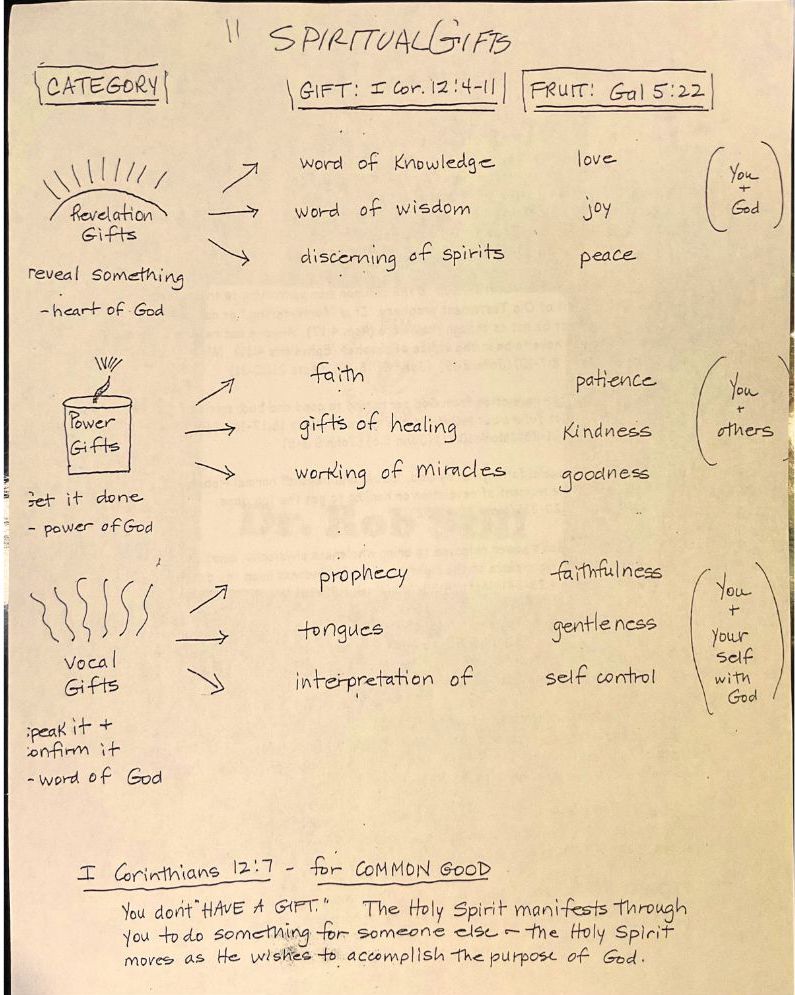 11 SPIRITUAL GIFTS
CATEGORY GIFT: I Cor. 12:4-11 FRUIT: Gal 5:22
Revelation Gifts
reveal something
- heart of God
word of Knowledge love
word of wisdom joy
discerning of spirits peace
You + God
Power Gifts
Get it done
- power of God
faith patience
gifts of healing Kindness
working of miracles goodness
You + others
Vocal Gifts
peak it +
onfirm it
- word of God
prophecy faithfulness
tongues gentleness
interpretation of self control
You + your self with God
I Corinthians 12:7 - for COMMON GOOD
You don't "HAVE A GIFT." The Holy Spirit manifests through
you to do something for someone else - the Holy Spirit
moves as He wishes to accomplish the purpose of God.